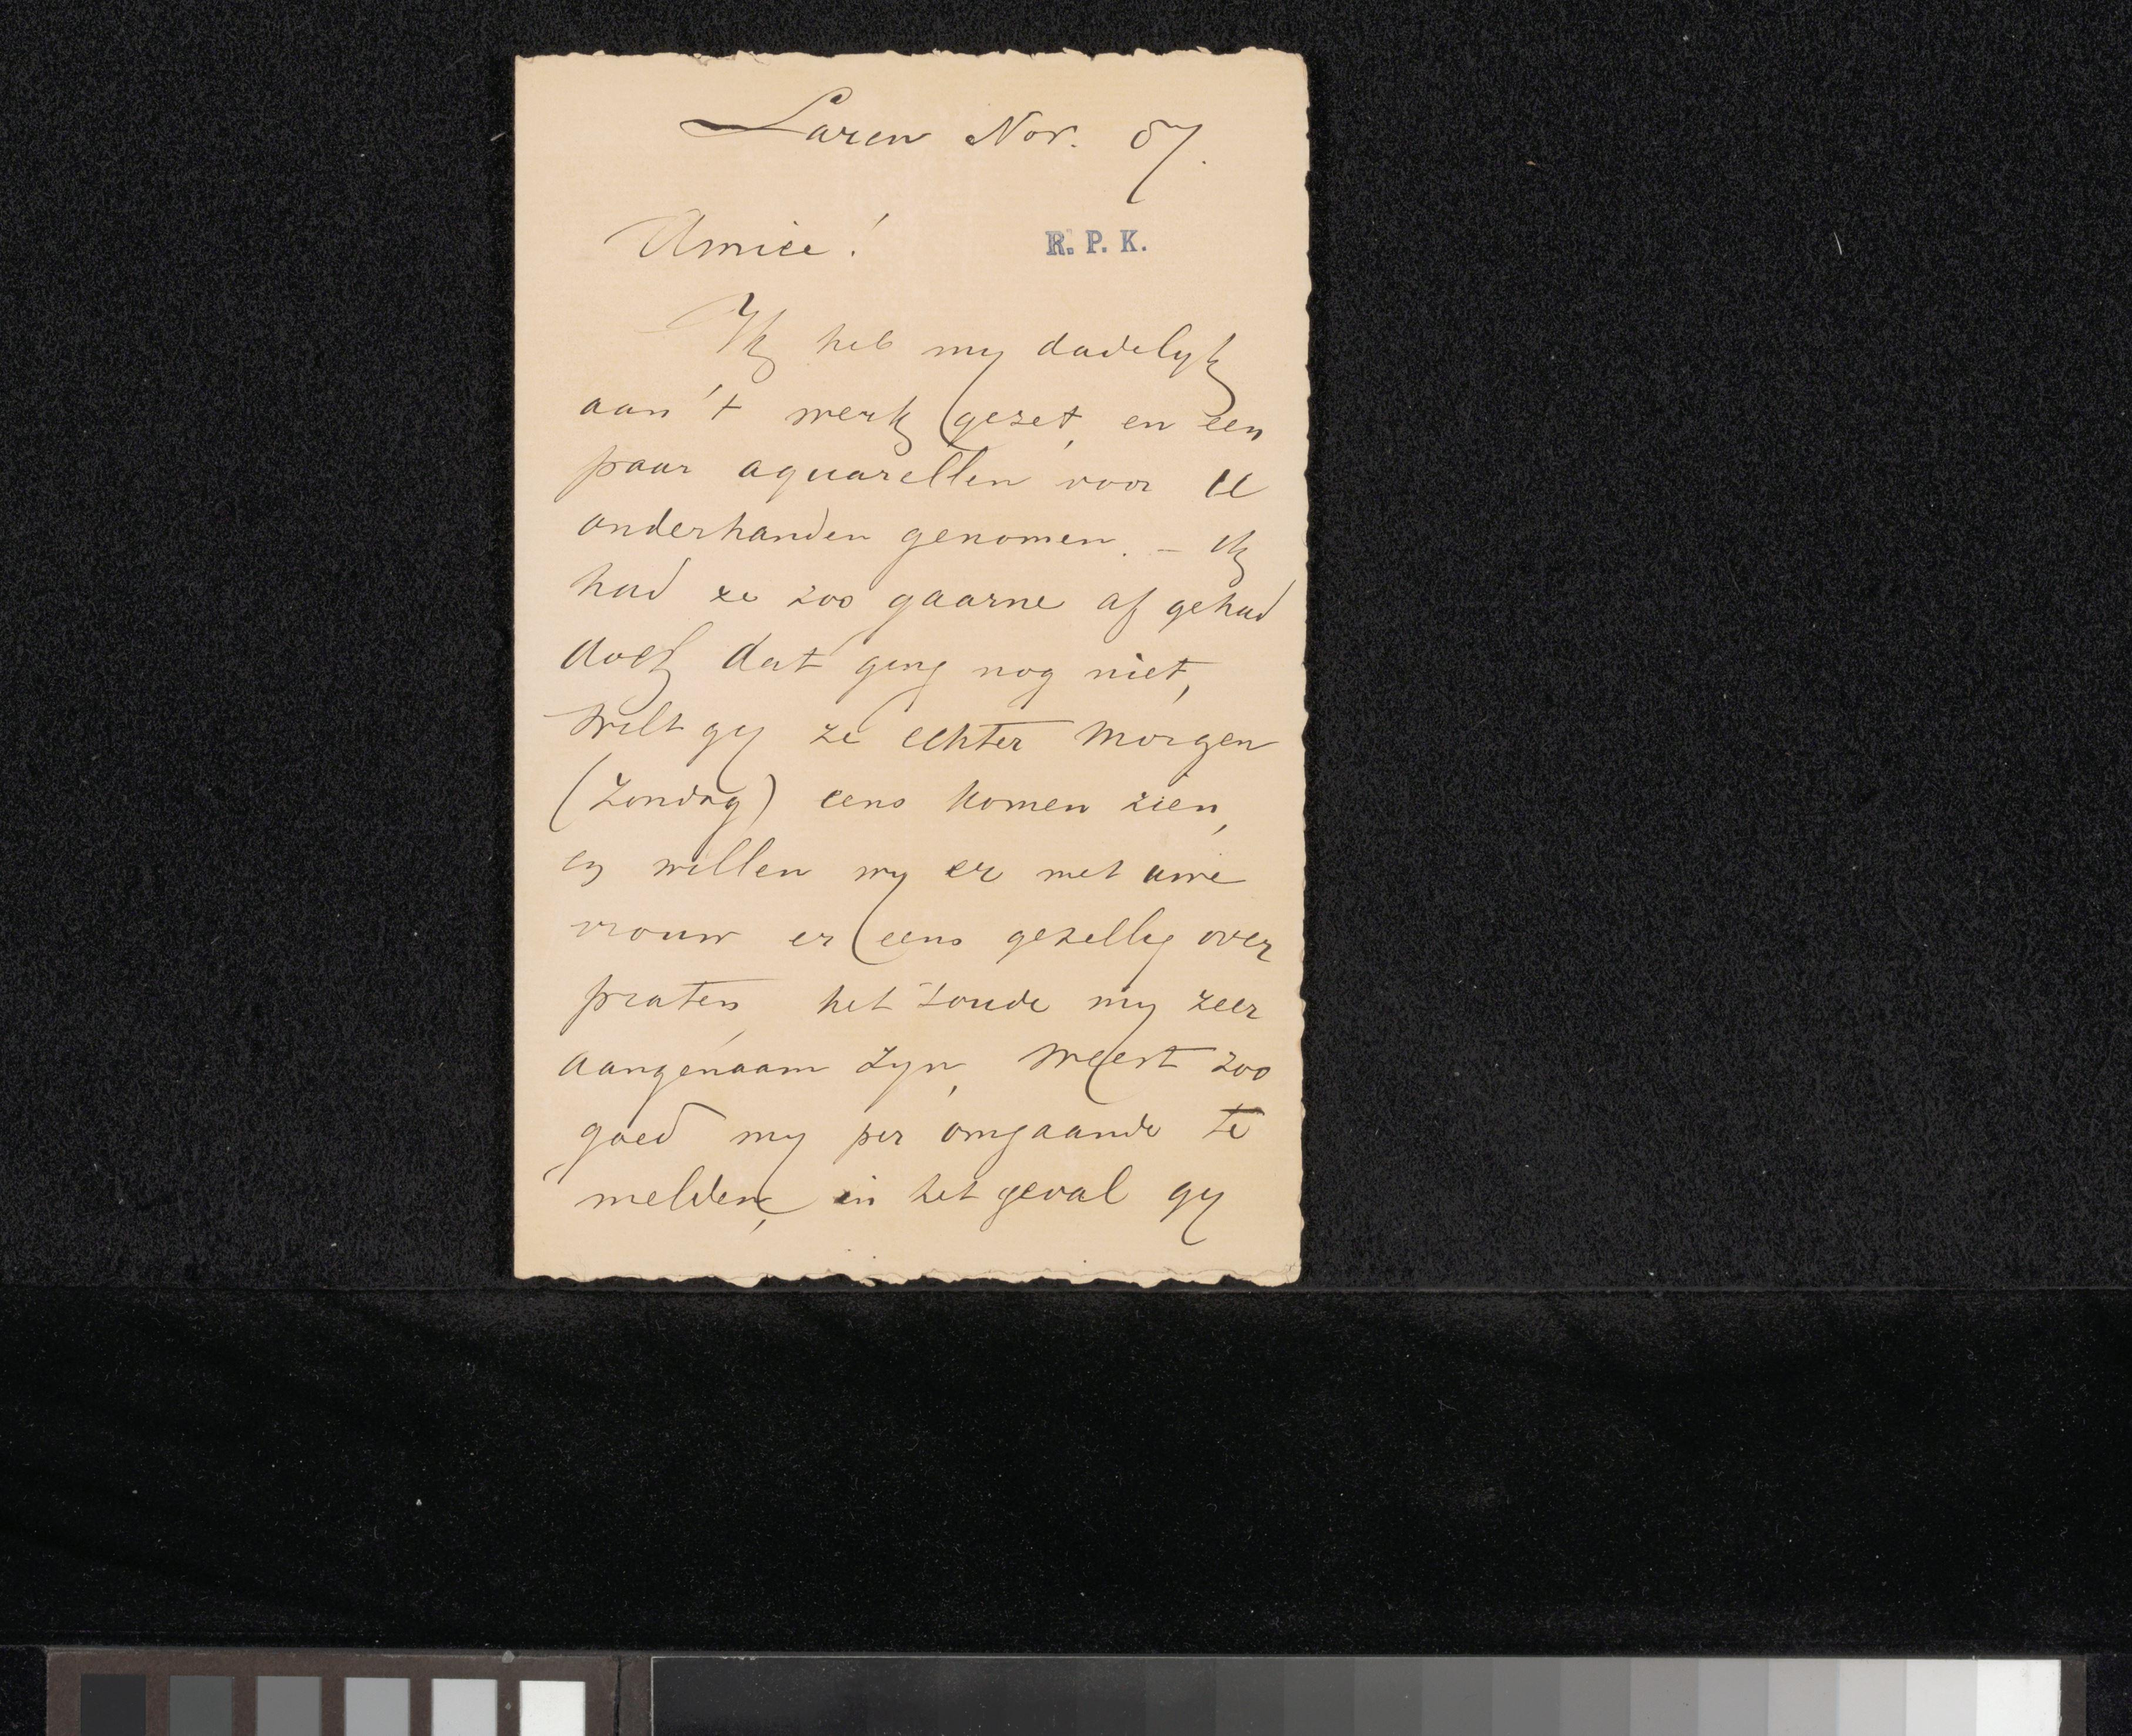 Laren Nov. 87.
Amice!
R. P. K.
Ik heb my dadelyk
aan 't werk gezet, en een
paar aquarellen voor U
onderhanden genomen. – Ik
had ze zoo gaarne af gehad
doch dat ging nog niet,
Wilt gy ze echter morgen
(Zondag) eens komen zien,
en willen wy er met uwe
vrouw er eens gezellig over
praten, het zoude my zeer
aangenaam zyn, Weest zoo
goed my per omgaande te
melden, in het geval gy